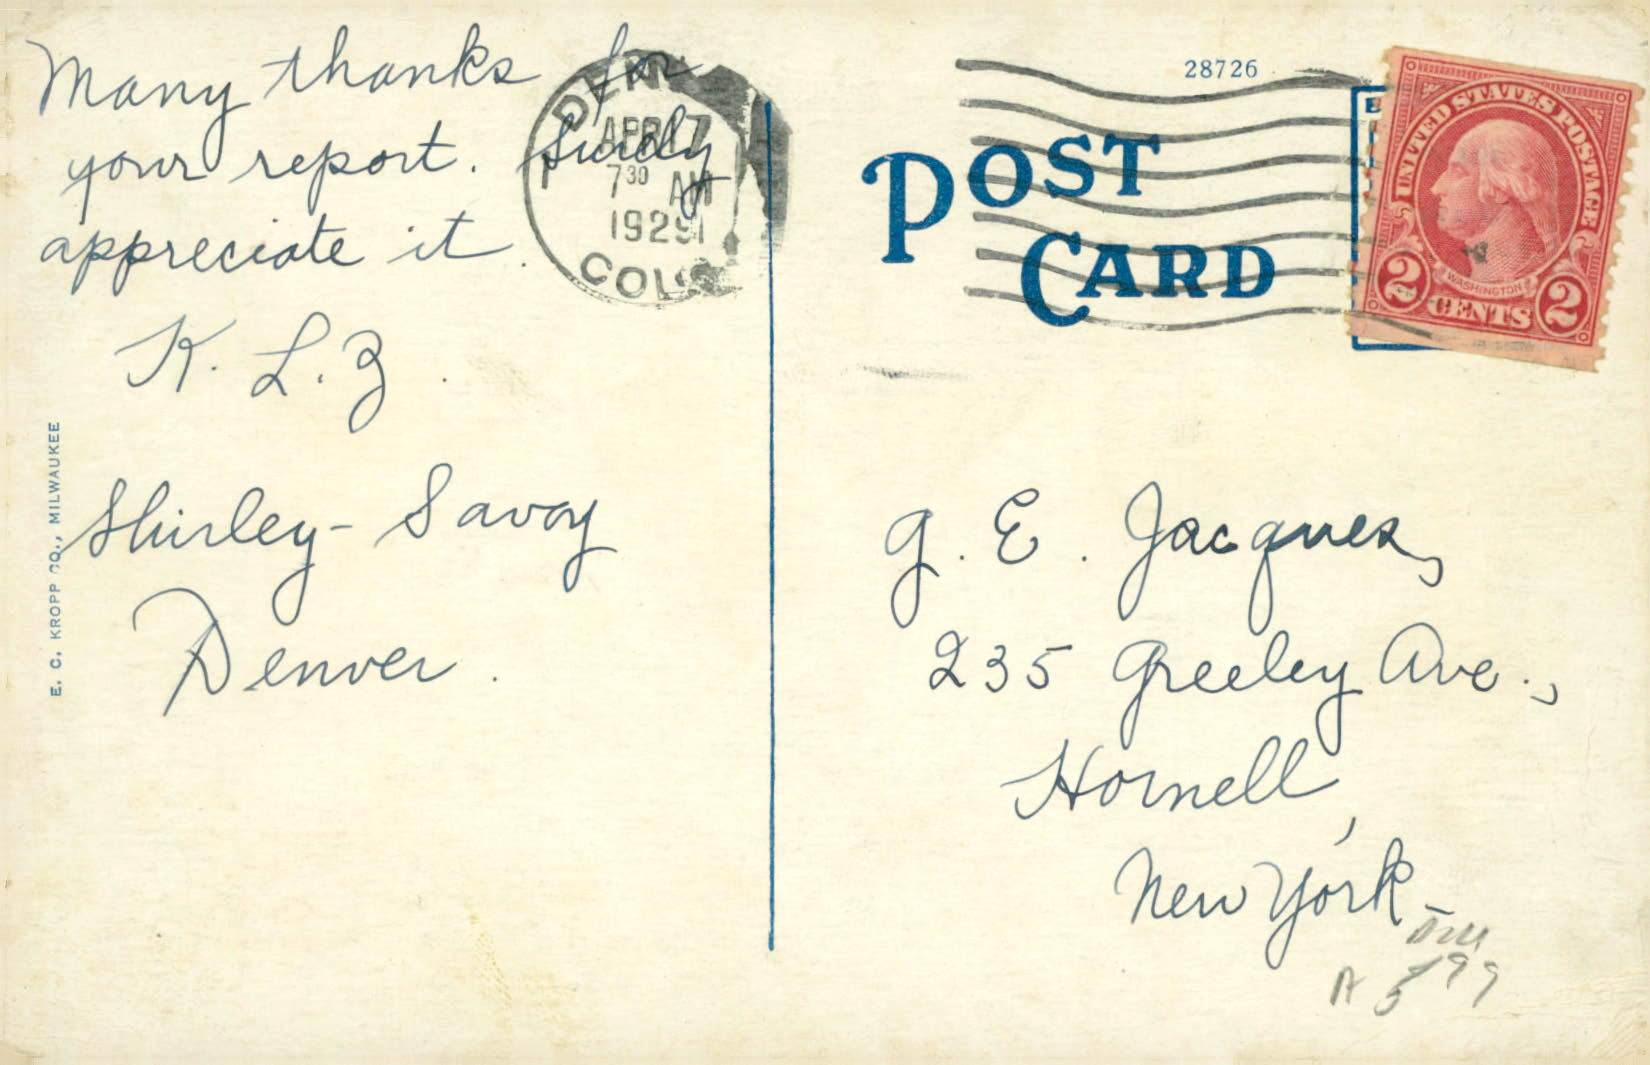 Many thanks for
your report. Surely
appreciate it.
K. L. Z.
Shirley-Savoy
Denver.
E. C. KROPP CO., MILWAUKEE
APR 17
7 30 AM
1929
COLO
28726
POST
CARD
UNITED STATES POSTAGE
WASHINGTON
2 CENTS 2
G. E. Jacques,
235 Greeley Ave.,
Hornell,
New York-